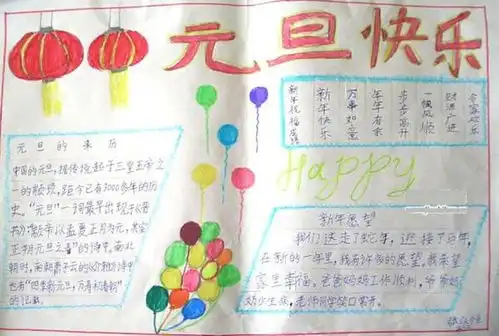 元旦快乐
新年祝福成语
新年快乐
万事如意
年年有余
步步高升
一帆风顺
财源广进
合家欢乐
元旦的来历
中国的元旦，据传说起于三皇五帝之
一的颛顼，距今已有3000多年的历
史。"元旦"一词最早出现于《晋
书》
正朔元旦之春"的诗中。南北
朝时，南朝萧子云的《介雅》诗中
也有"四季新元旦，万寿初春朝"的
的记载。
Happy
新年愿望
我们送走了蛇年，迎接了马年，
在新的一年里，我有许多的愿望，我希望
家里幸福。爸爸妈妈工作顺利，爷爷奶
奶少生病，老师同学笑口常开。